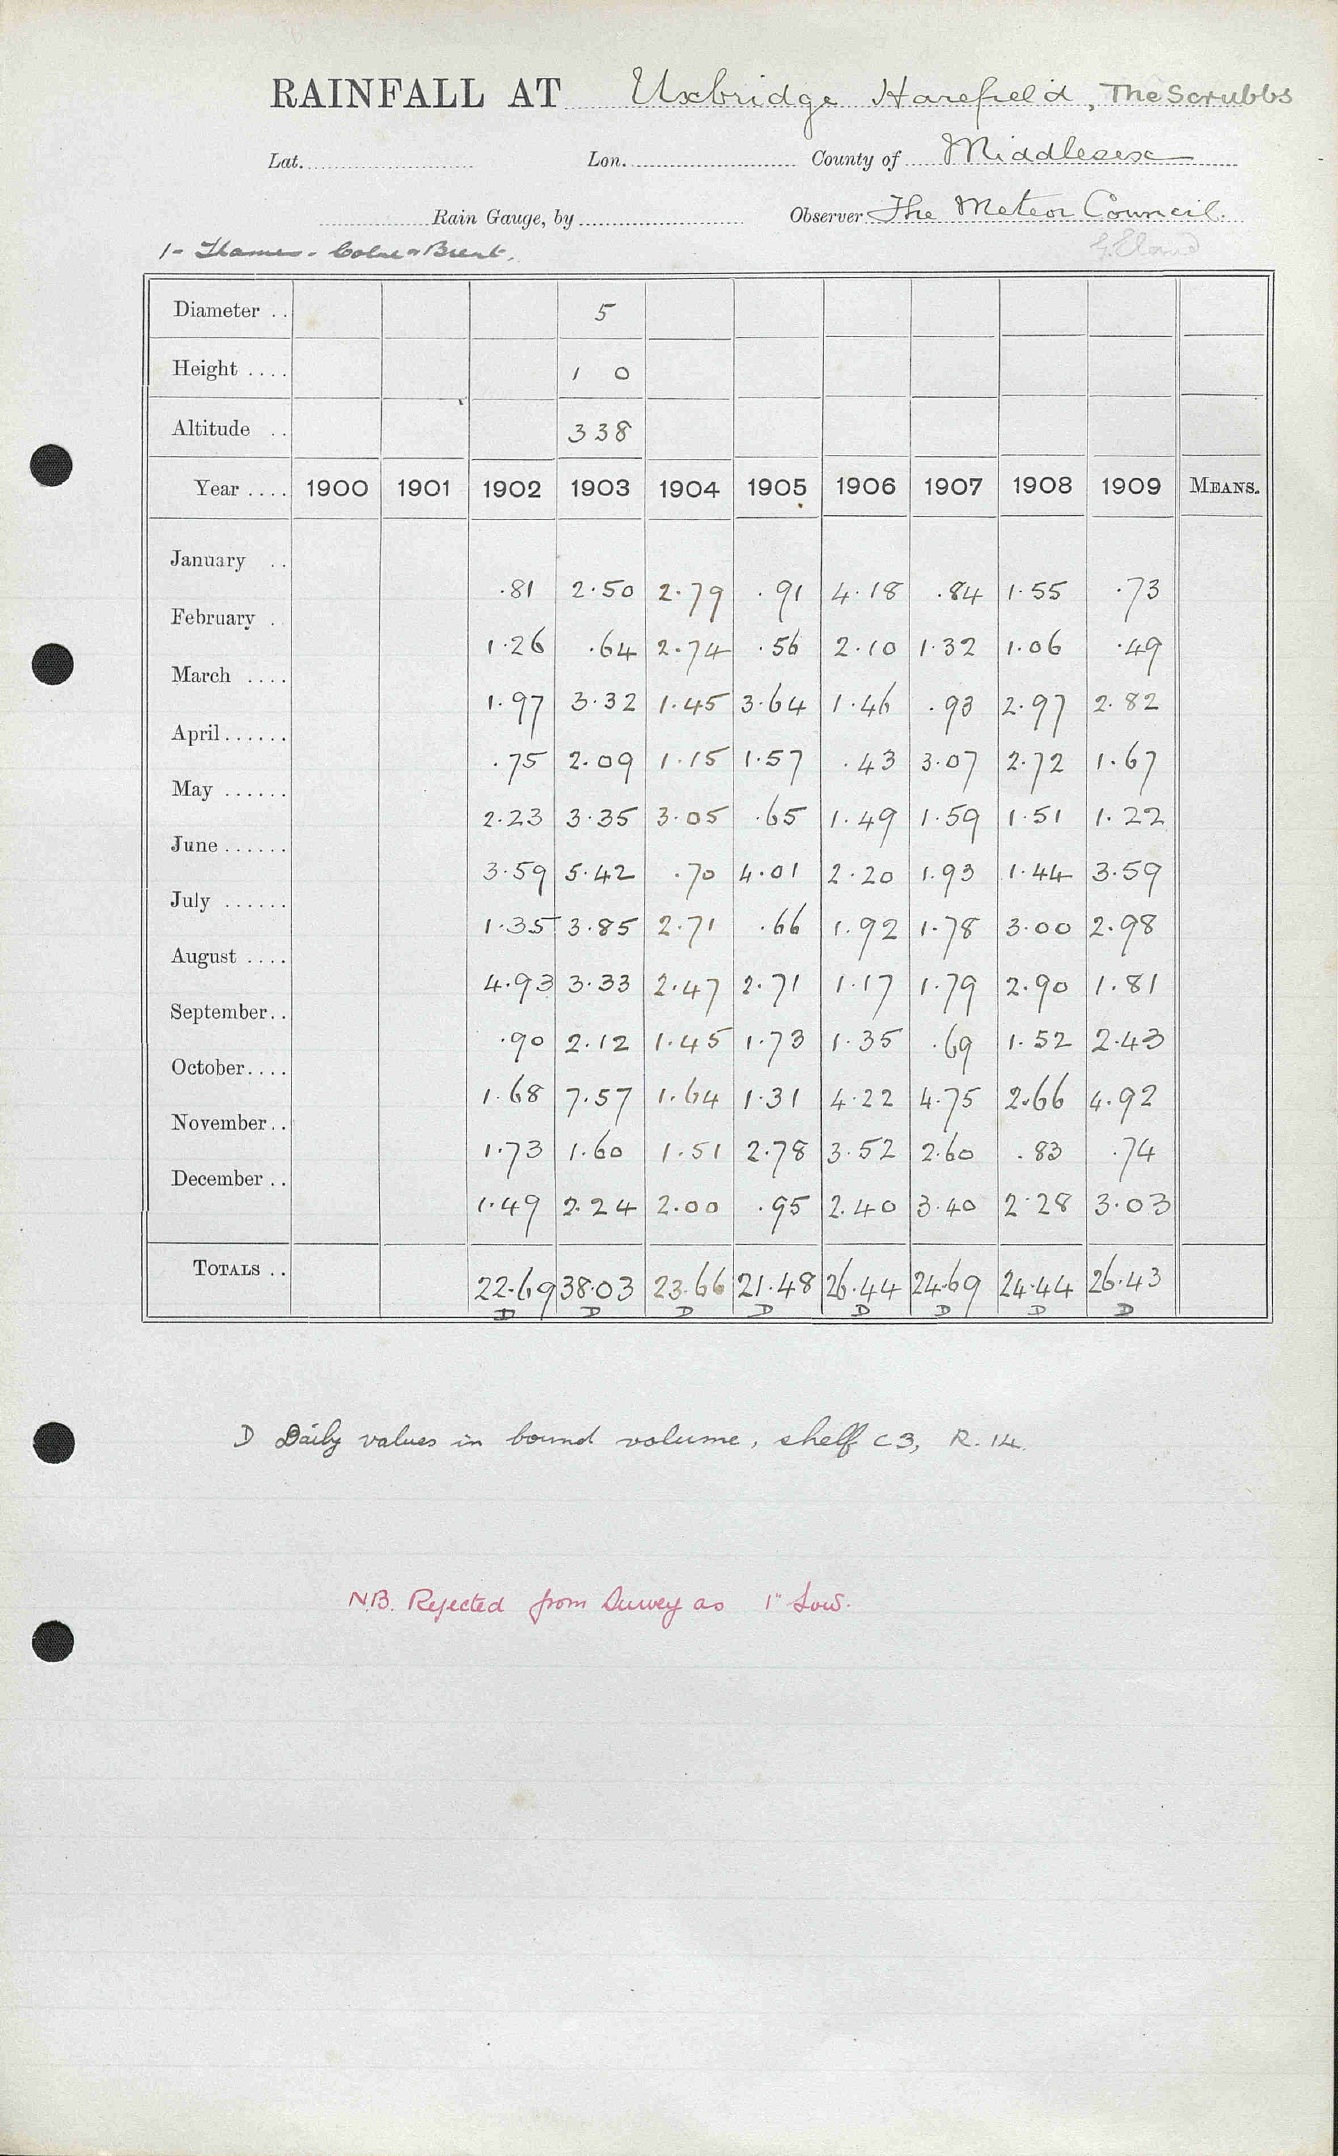 RAINFALL AT Uxbridge Harefield, The Scrubbs
Lat. Lon. County of Middlesex
Rain Gauge, by Observer The Meteor Council.
1 - Thames - Colne & Brent.
Diameter .. 5
Height .... 1 0
Altitude .. 338
Year .... 1900 1901 1902 1903 1904 1905 1906 1907 1908 1909 MEANS.
January .. .81 2.50 2.79 .91 4.18 .84 1.55 .73
February . 1.26 .64 2.74 .56 2.10 1.32 1.06 .49
March .... 1.97 3.32 1.45 3.64 1.46 .93 2.97 2.82
April...... .75 2.09 1.15 1.57 .43 3.07 2.72 1.67
May ...... 2.23 3.35 3.05 .65 1.49 1.59 1.51 1.22
June ...... 3.59 5.42 .70 4.01 2.20 1.93 1.44 3.59
July ...... 1.35 3.85 2.71 .66 1.92 1.78 3.00 2.98
August .... 4.93 3.33 2.47 2.71 1.17 1.79 2.90 1.81
September.. .90 2.12 1.45 1.73 1.35 .69 1.52 2.43
October.... 1.68 7.57 1.64 1.31 4.22 4.75 2.66 4.92
November.. 1.73 1.60 1.51 2.78 3.52 2.60 .83 .74
December .. 1.49 2.24 2.00 .95 2.40 3.40 2.28 3.03
TOTALS .. 22.69 38.03 23.66 21.48 26.44 24.69 24.44 26.43
D D D D D D D D
D Daily values in bound volume, shelf C3, R. 14.
N.B. Rejected from Survey as 1" low.